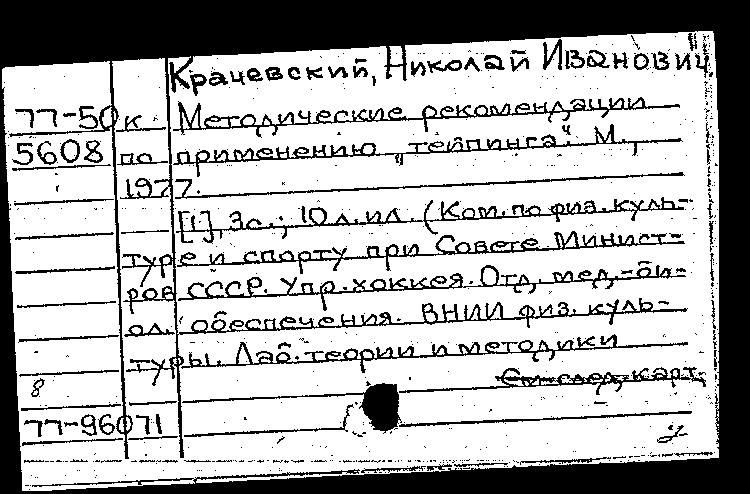 Крачевский, Николай Иванович
77-50к Методические рекомендации
5608 по применению „тейпинга“. М.,
1977.
[1], 3с.; 10 л. ил. (Ком. по физ. куль-
туре и спорту при Совете Минист-
ров СССР. Упр. хоккея. Отд. мед.-би-
ол. обеспечения. ВНИИ физ. куль-
туры. Лаб. теории и методики
См. след. карт.
8
77-96071